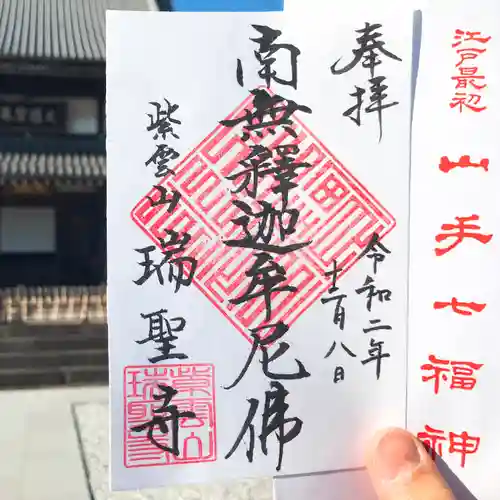 江戸最初
山手七福神
奉拝
令和二年
十二月八日
南無釋迦牟尼佛
紫雲山
瑞聖寺